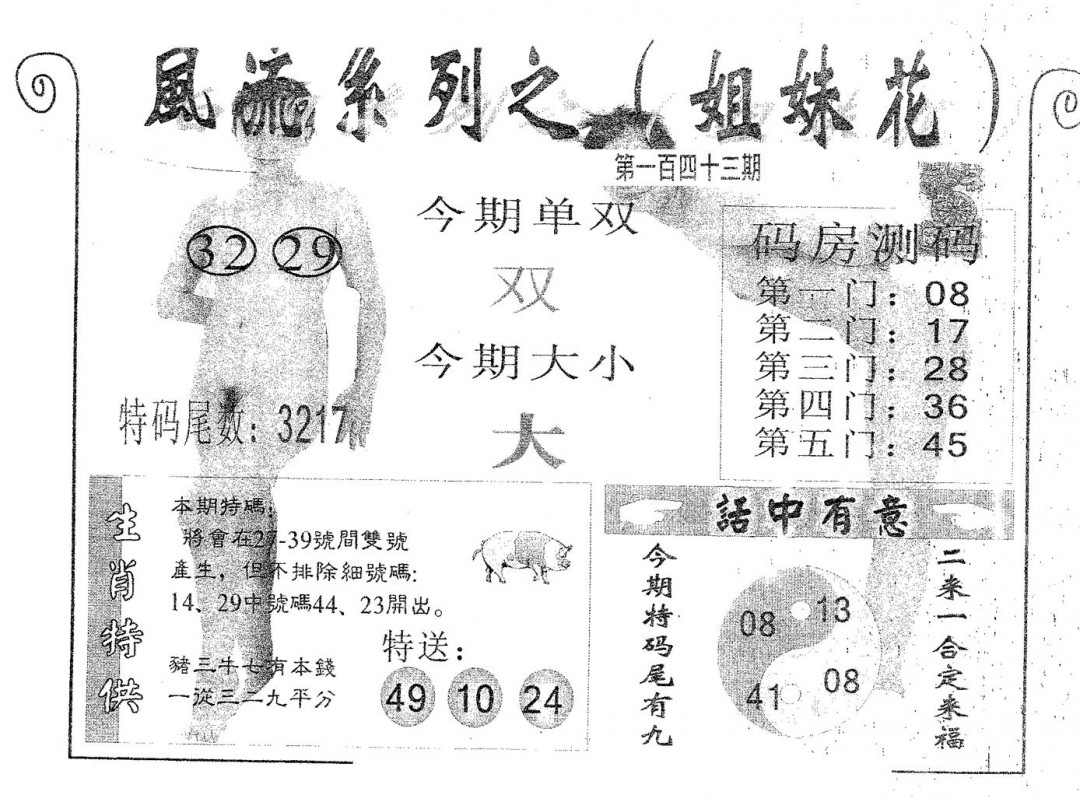 風流系列之（姐妹花）
第一百四十三期
32 29
今期单双
双
今期大小
大
特码尾数：3217
码房测码
第一门：08
第二门：17
第三门：28
第四门：36
第五门：45
生肖特供
本期特碼：
將會在27-39號間雙號
產生，但不排除細號碼：
14、29中號碼44、23開出。
豬三牛七有本錢
一從三二九平分
特送：
49 10 24
話中有意
今期特码尾有九
08 13
41 08
二来一合定来福